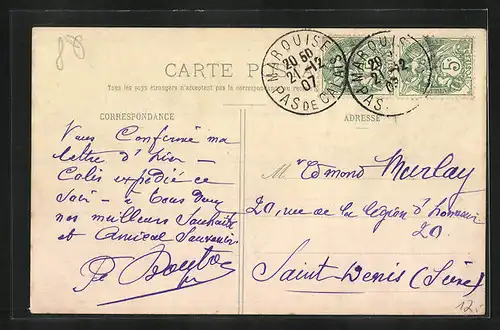 88
CARTE P
MARQUISE
20 50
21-12
07
PAS DE CALAIS
MARQUISE
20
21-12
PAS
5
Tous les pays étrangers n'acceptent pas la correspondance
CORRESPONDANCE
ADRESSE
Vous Confirme ma
lettre d'hier –
Colis expédié ce
soir – à tous deux
nos meilleurs Souhaits
et Amical Souvenir.
Mr Edmond
20, rue de la légion d'honneur
20.
Saint Denis (Seine)
12.-